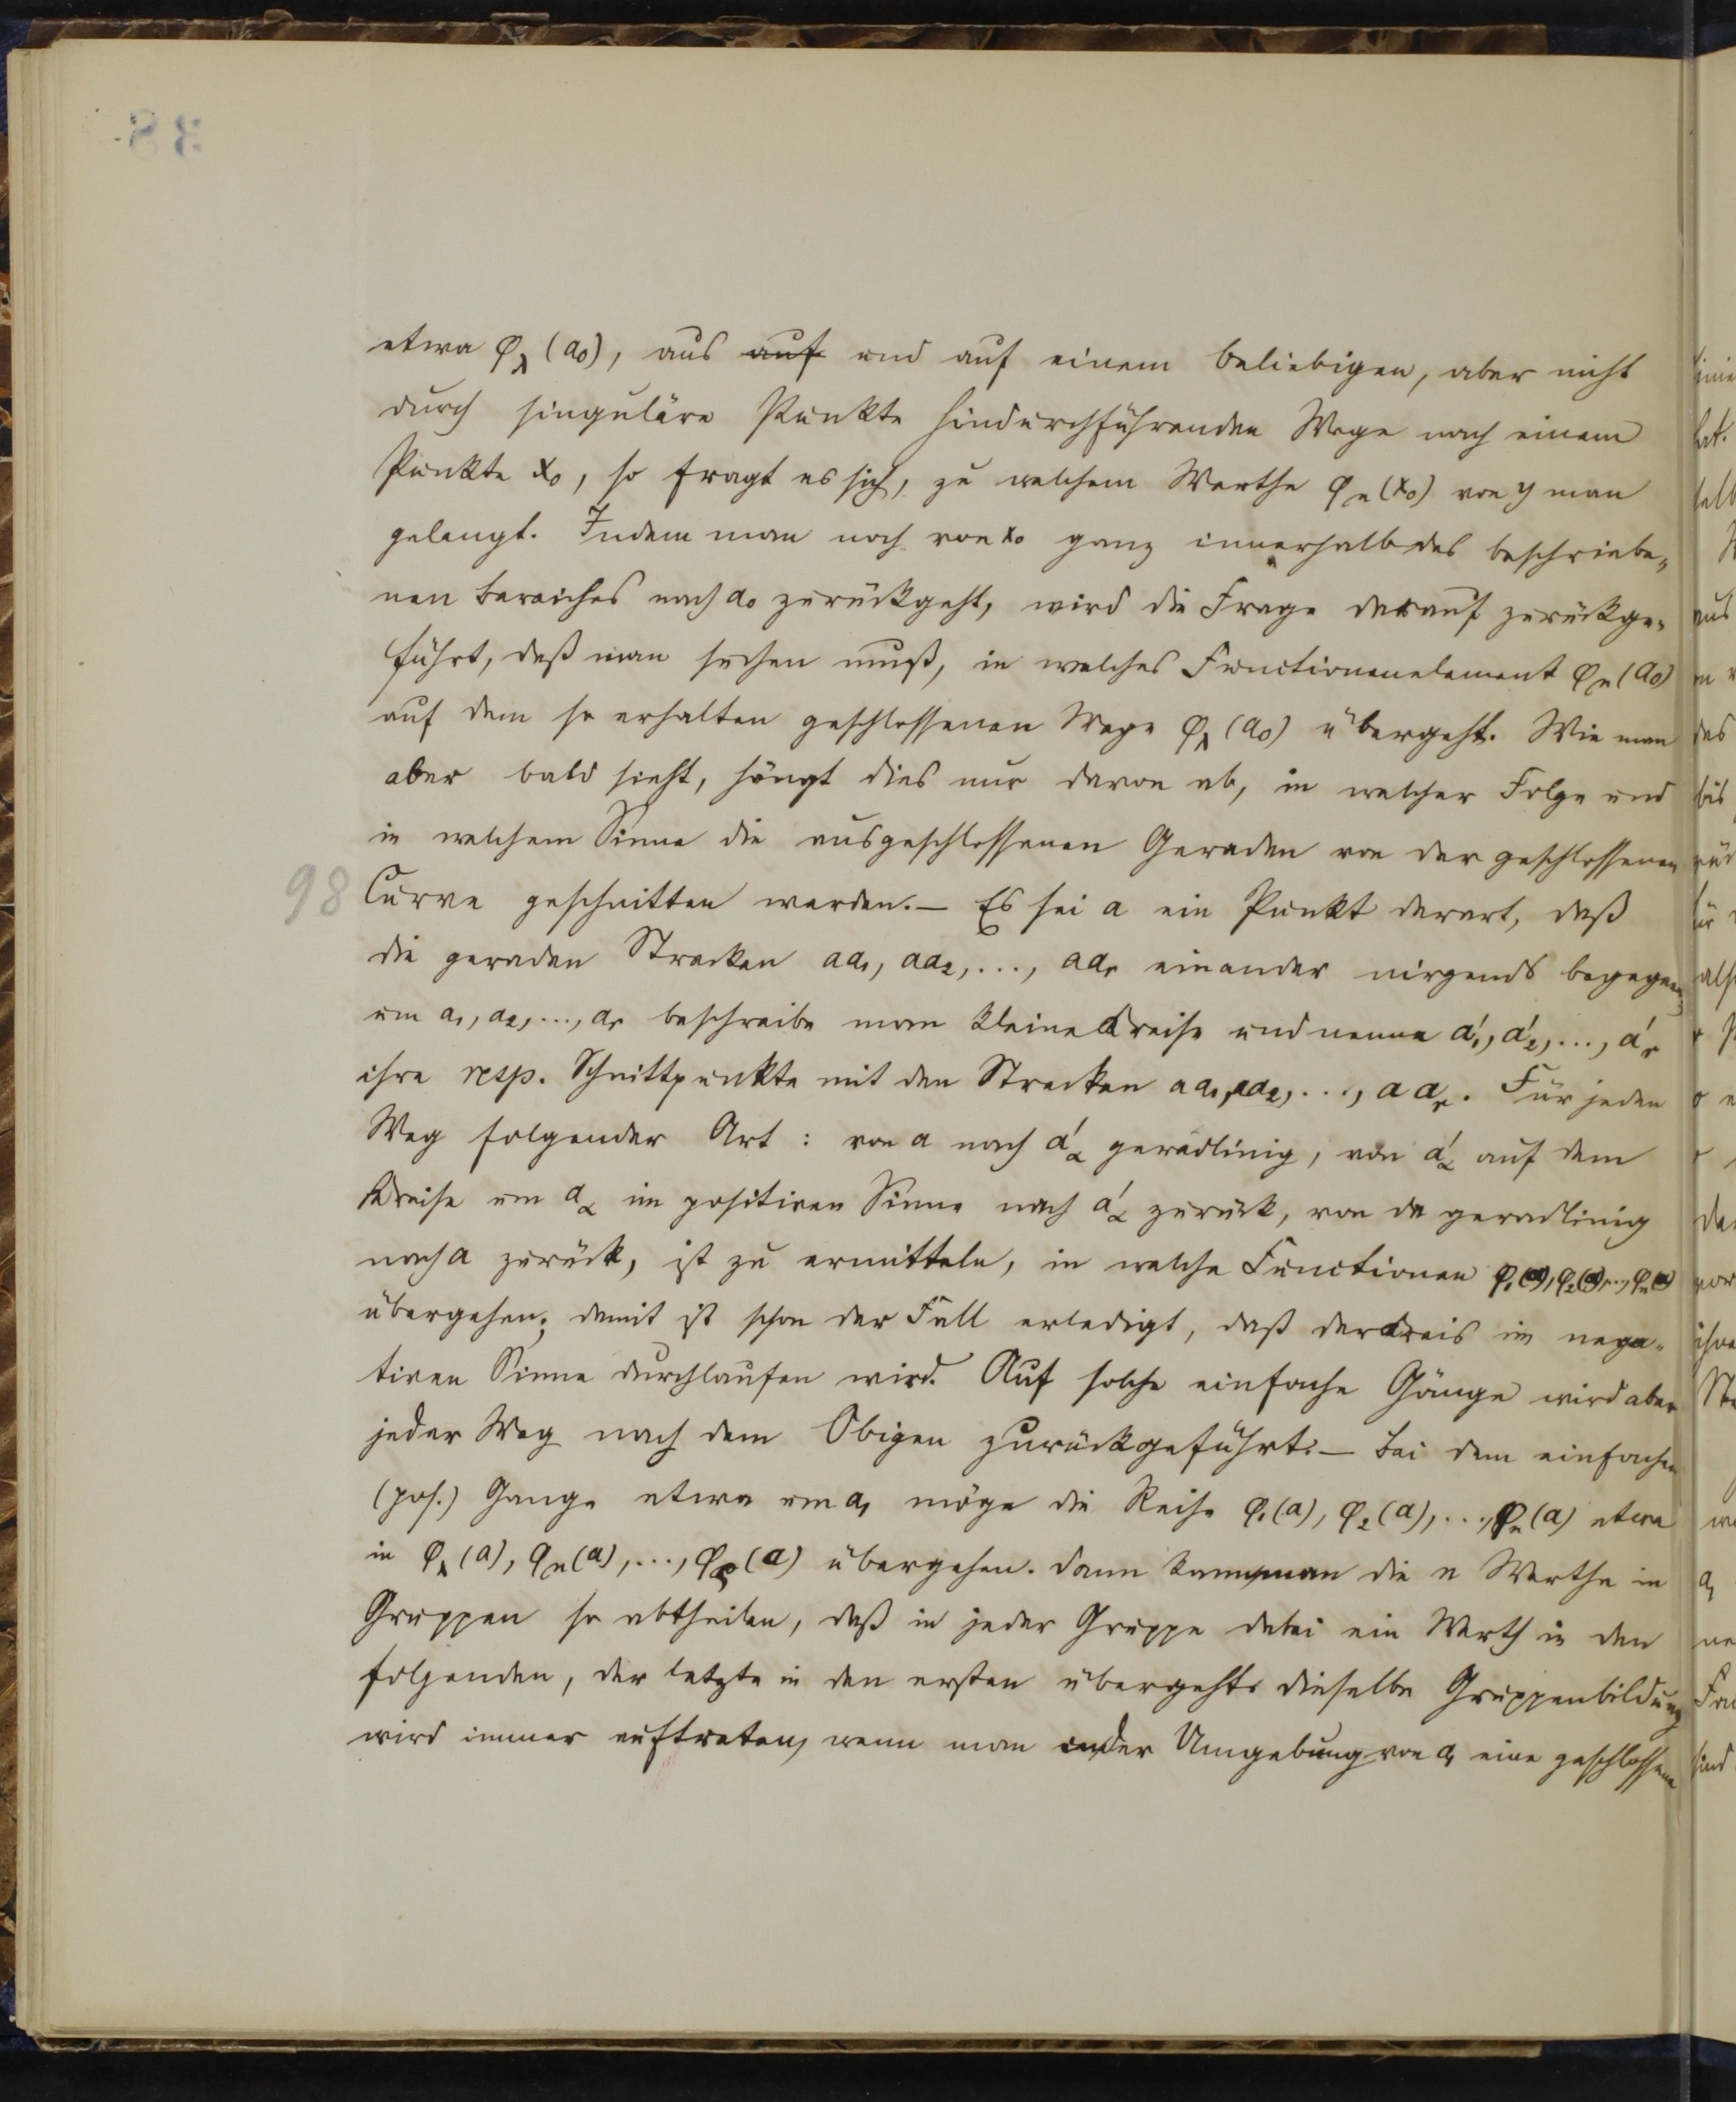 etwa φ_λ(a₀), aus ~~auf~~ und auf einem beliebigen, aber nicht
durch singuläre Punkte hindurchführenden Wege nach einem
Punkte x₀, so fragt es sich, zu welchem Werthe φ_μ(x₀) von y man
gelangt. Indem man noch von x₀ ganz innerhalb des beschriebe„
nen Bereiches nach a₀ zurückgeht, wird die Frage darauf zurückge„
führt, daß man suchen muß, in welches Functionenelement φ_μ(a₀)
auf dem so erhalten geschlossenen Wege φ_λ(a₀) übergeht. Wie man
aber bald sieht, hängt dies nur davon ab, in welcher Folge und
in welchem Sinne die ausgeschlossenen Geraden von der geschlossenen
98 Curve geschnitten werden. — Es sei a ein Punkt derart, daß
die geraden Strecken aa₁, aa₂, ..., aa_r einander nirgends begegnen;
um a₁, a₂, ..., a_r beschreibe man kleine Kreise und nenne a′₁, a′₂, ..., a′_r
ihre resp. Schnittpunkte mit den Strecken aa₁, aa₂, ..., aa_r. Für jeden
Weg folgender Art: von a nach a′_α geradlinig, von a′_α auf dem
Kreise um a_α im positiven Sinne nach a′_α zurück, von da geradlinig
nach a zurück, ist zu ermitteln, in welche Functionen φ₁(a), φ₂(a), ..., φ_n(a)
übergehen; damit ist schon der Fall erledigt, daß der Kreis im nega„
tiven Sinne durchlaufen wird. Auf solche einfache Gänge wird aber
jeder Weg nach dem Obigen zurückgeführt. — Bei dem einfachen
(pos.) Gange etwa um a₁ möge die Reihe φ₁(a), φ₂(a), ..., φ_n(a) etwa
in φ_λ(a), φ_μ(a), ..., φ_ρ(a) übergehen. Dann kann man die n Werthe in
Gruppen so abtheilen, daß in jeder Gruppe dabei ein Werth in den
folgenden, der letzte in den ersten übergeht; dieselbe Gruppenbildung
wird immer auftreten, wenn man in der Umgebung von a₁ eine geschlossene